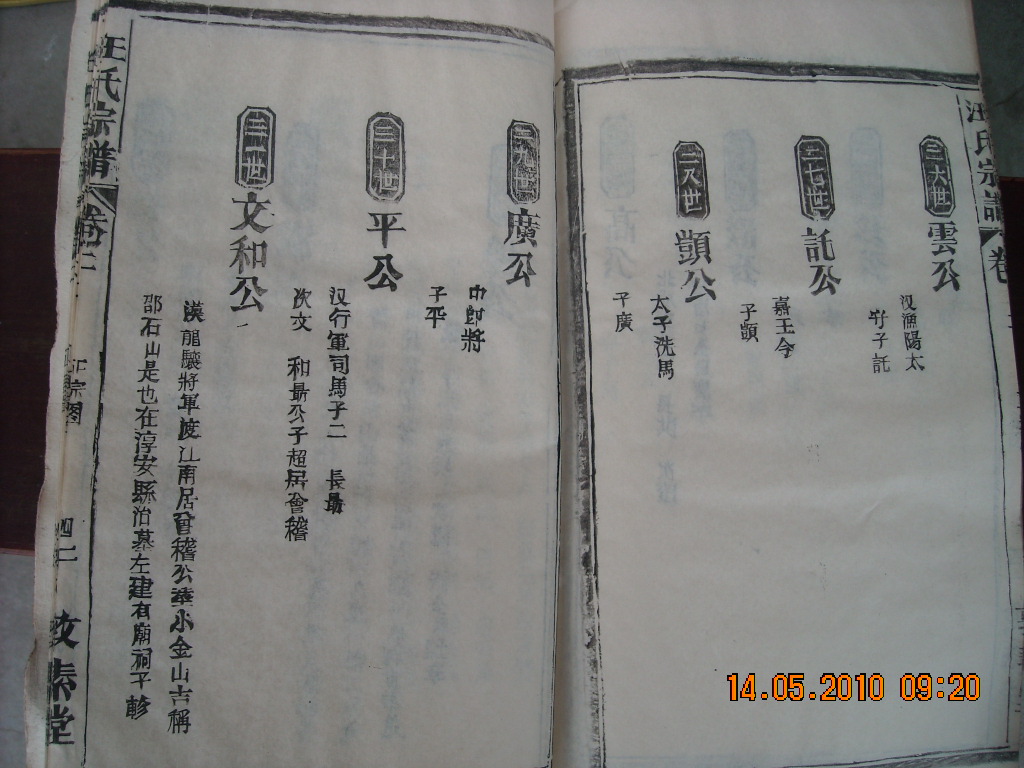 汪氏宗譜 卷
二六世
雲公
汉漁陽太
守子託
二七世
託公
嘉王令
子顗
二八世
顗公
太子洗馬
子廣
二九世
廣公
中郎將
子平
三十世
平公
汉行軍司馬子二 長勗
次文 和最公子超居會稽
三一世
文和公
漢龍驤將軍渡江南居會稽公葬小金山吉稱
邵石山是也在淳安縣治墓左建有廟祠子軫
汪氏宗譜 卷二
正宗图
四二
敦素堂
14.05.2010 09:20